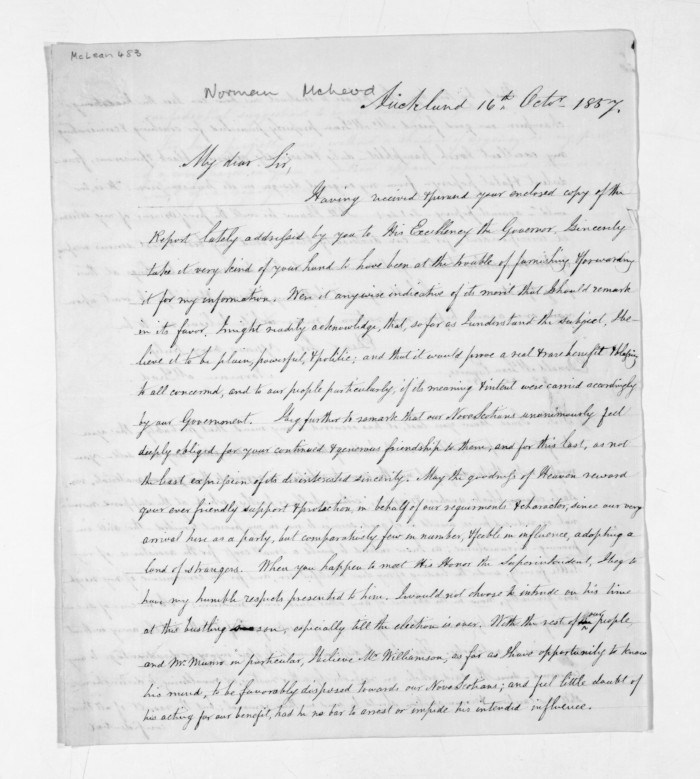 McLean 483
Norman McLeod
Auckland 16th Octr. 1857.
My dear Sir,
Having received & perused your enclosed copy of the
Report lately addressed by you to His Excellency the Governor, I sincerely
take it very kind of your hand to have been at the trouble of furnishing & forwarding
it for my information. Were it anywise indicative of its merit that I should remark
in its favor, I might readily acknowledge, that, so far as I understand the subject, I be-
lieve it to be plain, powerful, & politic; and that it would prove a real & rare benefit & blessing
to all concerned, and to our people particularly, if its meaning & intent were carried accordingly
by our Government. I beg further to remark that our NovaScotians unanimously feel
deeply obliged for your continued & generous friendship to them, and for this last, as not
the least expression of its disinterested sincerity. May the goodness of Heaven reward
your ever friendly support & protection, in behalf of our requirements & character, since our very
arrival here as a party, but comparatively few in number, & feeble in influence, adopting a
land of strangers. When you happen to meet His Honor the Superintendent, I beg to
have my humble respects presented to him. I would not choose to intrude on his time
at this bustling season, especially till the election is over. With the rest of our people,
and Mr. Munro in particular, I believe Mr Williamson, as far as I have opportunity to know
his mind, to be favorably disposed towards our NovaScotians; and feel little doubt of
his acting for our benefit, had he no bar to arrest or impede his intended influence.